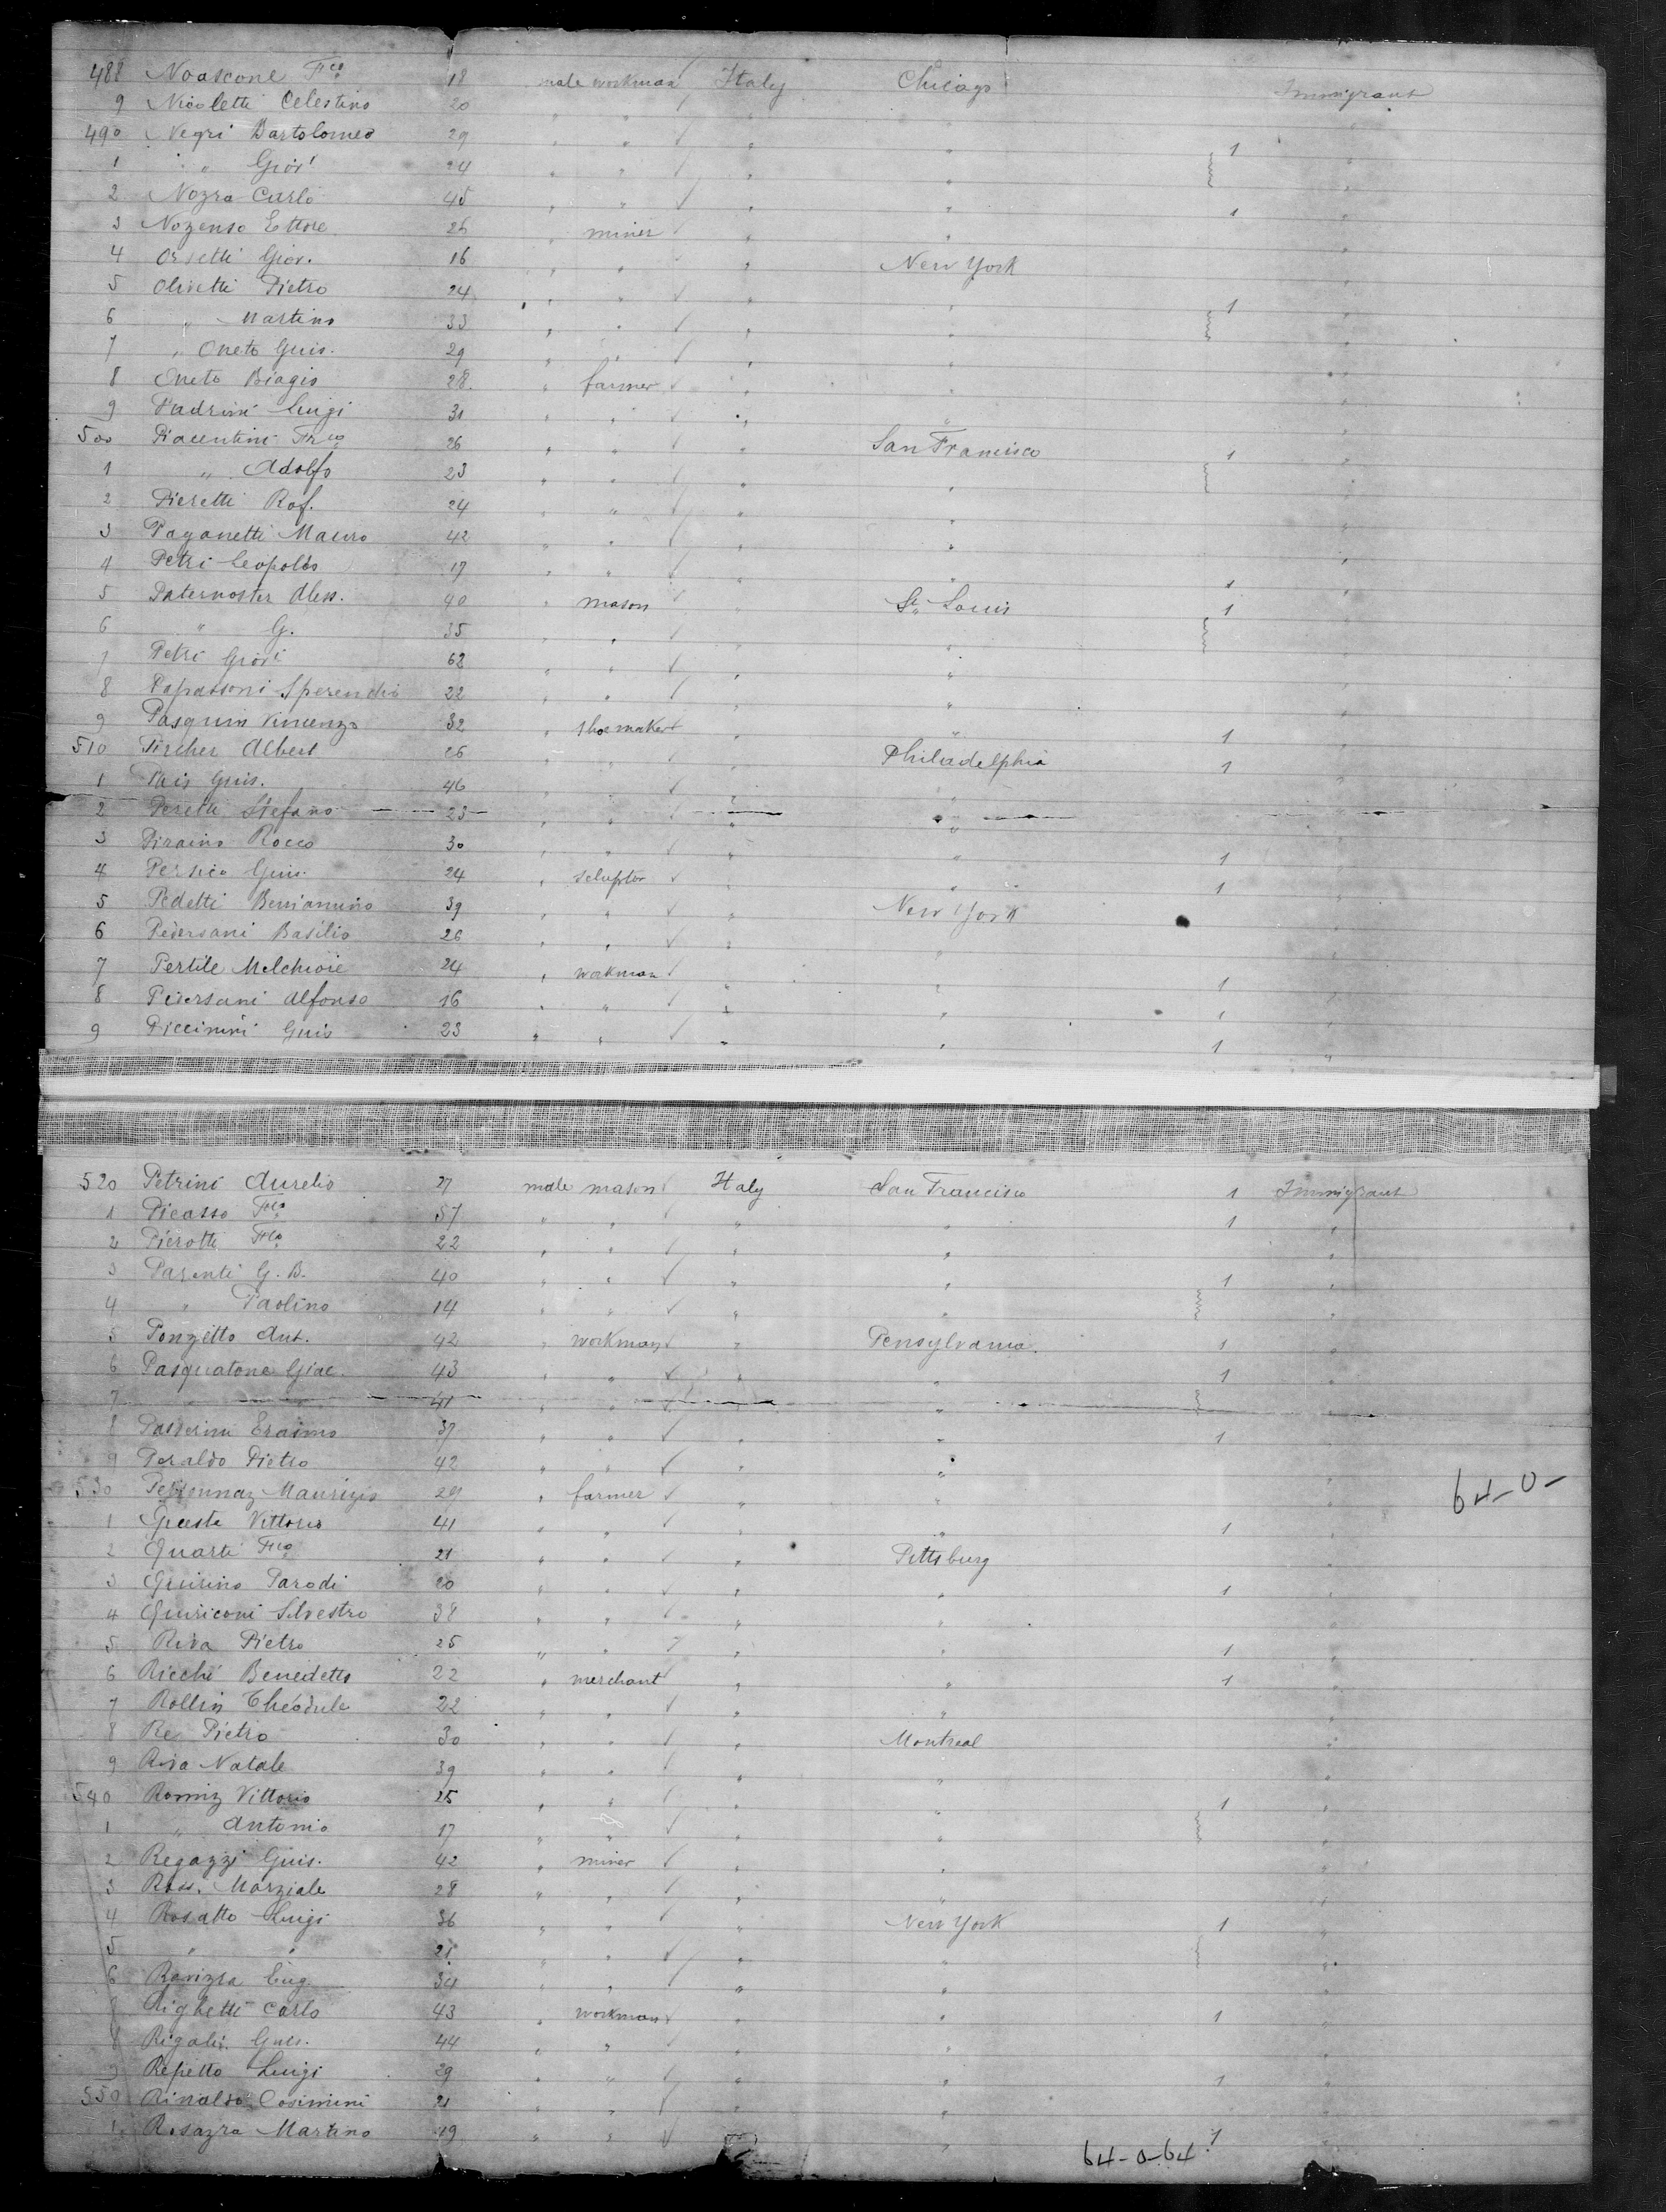 488 Noascone Fco 18 male workman Italy Chicago Immigrant
9 Nicoletti Celestino 20 " " " " "
490 Negri Bartolomeo 29 " " " " 1 "
1 " Giovi 24 " " " " "
2 Nozra Carlo 45 " " " " 1 "
3 Nozenso Ettore 26 " miner " " "
4 Orsetti Giov. 16 " " " New York "
5 Olivetti Pietro 24 " " " " 1 "
6 " Martino 33 " " " " "
7 " Oneto Guis. 29 " " " " "
8 Oneto Biagio 28 " farmer " " "
9 Padrini Luigi 31 " " " " "
500 Piacentini Frco 26 " " " San Francisco 1 "
1 " Adolfo 23 " " " " "
2 Pieretti Raf. 24 " " " " "
3 Paganetti Mauro 42 " " " " "
4 Petri Leopoldo 17 " " " " 1 "
5 Paternoster Aless. 40 " mason " St. Louis 1 "
6 " G. 35 " " " " "
7 Petri Giovi 62 " " " " "
8 Papassoni Sperendio 22 " " " " "
9 Pasquin Vincenzo 32 " shoemaker " " 1 "
510 Pircher Albert 26 " " " Philadelphia 1 "
1 Pais Guis. 46 " " " " "
2 Peretti Stefano 23 " " " " "
3 Piraino Rocco 30 " " " " 1 "
4 Persico Guis. 24 " sculptor " " 1 "
5 Pedetti Beniamino 39 " " " New York "
6 Piersani Basilio 26 " " " " "
7 Pertile Melchiore 24 " workman " " 1 "
8 Piersani Alfonso 16 " " " " 1 "
9 Piccinini Guis 23 " " " " 1 "
520 Petrini Aurelio 27 male mason Italy San Francisco 1 Immigrant
1 Picasso Fco 57 " " " " 1 "
2 Pierotti Fco 22 " " " " "
3 Parenti G. B. 40 " " " " 1 "
4 " Paolino 14 " " " " "
5 Ponzetto Ant. 42 " workman " Pensylvania. 1 "
6 Pasquatone Giac. 43 " " " " 1 "
7 41 " " " " "
8 Passerini Erasmo 37 " " " " 1 "
9 Peraldo Pietro 42 " " " " "
530 Perronnaz Maurizio 29 " farmer " " "
64-0-
1 Questa Vittorio 41 " " " " 1 "
2 Quarti Frco 21 " " " Pittsburg "
3 Quirino Parodi 20 " " " " 1 "
4 Quiriconi Silvestro 38 " " " " "
5 Riva Pietro 25 " " " " 1 "
6 Ricchi Benedetto 22 " merchant " " 1 "
7 Rollin Théodule 22 " " " " "
8 Re Pietro 30 " " " Montreal "
9 Riva Natale 39 " " " " "
540 Romiz Vittorio 25 " " " " 1 "
1 " Antonio 17 " " " " "
2 Regazzi Guis. 42 " miner " " "
3 Ross. Marziale 28 " " " " "
4 Rosatto Luigi 36 " " " New York 1 "
5 " " 21 " " " " "
6 Ravizza Eug. 34 " " " " "
7 Righetti Carlo 43 " workman " " 1 "
8 Rigali Guis. 44 " " " " "
9 Repetto Luigi 29 " " " " 1 "
550 Rinaldo Cosimini 21 " " " " "
1 Rosazza Martino 19 " " " " 1 "
64-0-64